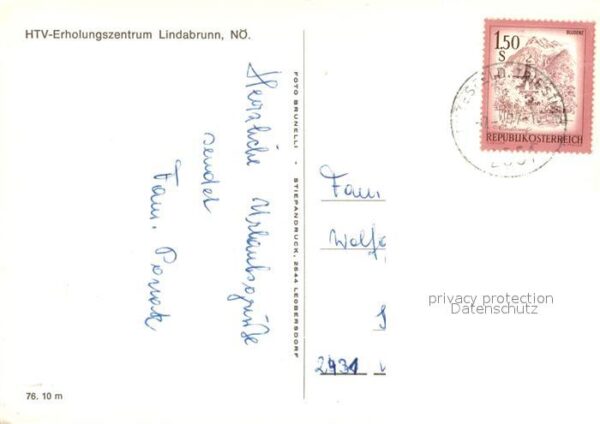 HTV-Erholungszentrum Lindabrunn, NÖ.
Herzliche Urlaubsgrüße
sendet
Fam.
FOTO BRUNELLI • STIEPANDRUCK, 2544 LEOBERSDORF
BLUDENZ
1.50
S
REPUBLIK ÖSTERREICH
Fam
Wolfg
privacy protection
Datenschutz
2431
76. 10 m